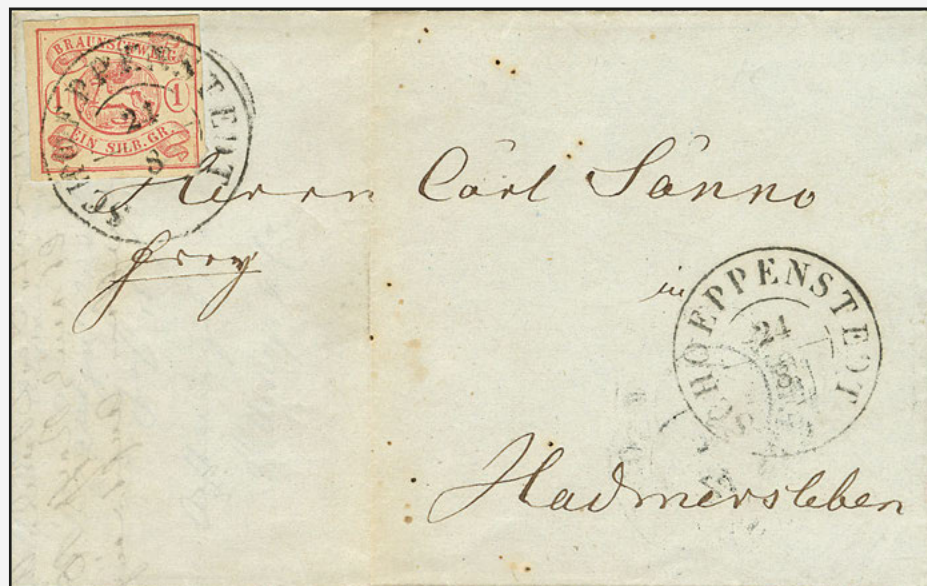 BRAUNSCHWEIG
1 1
EIN SILB. GR.
SCHOEPPENSTEDT
24
8
Herrn Cárl Sánno
frey
in
SCHOEPPENSTEDT
24
8
Hadmersleben